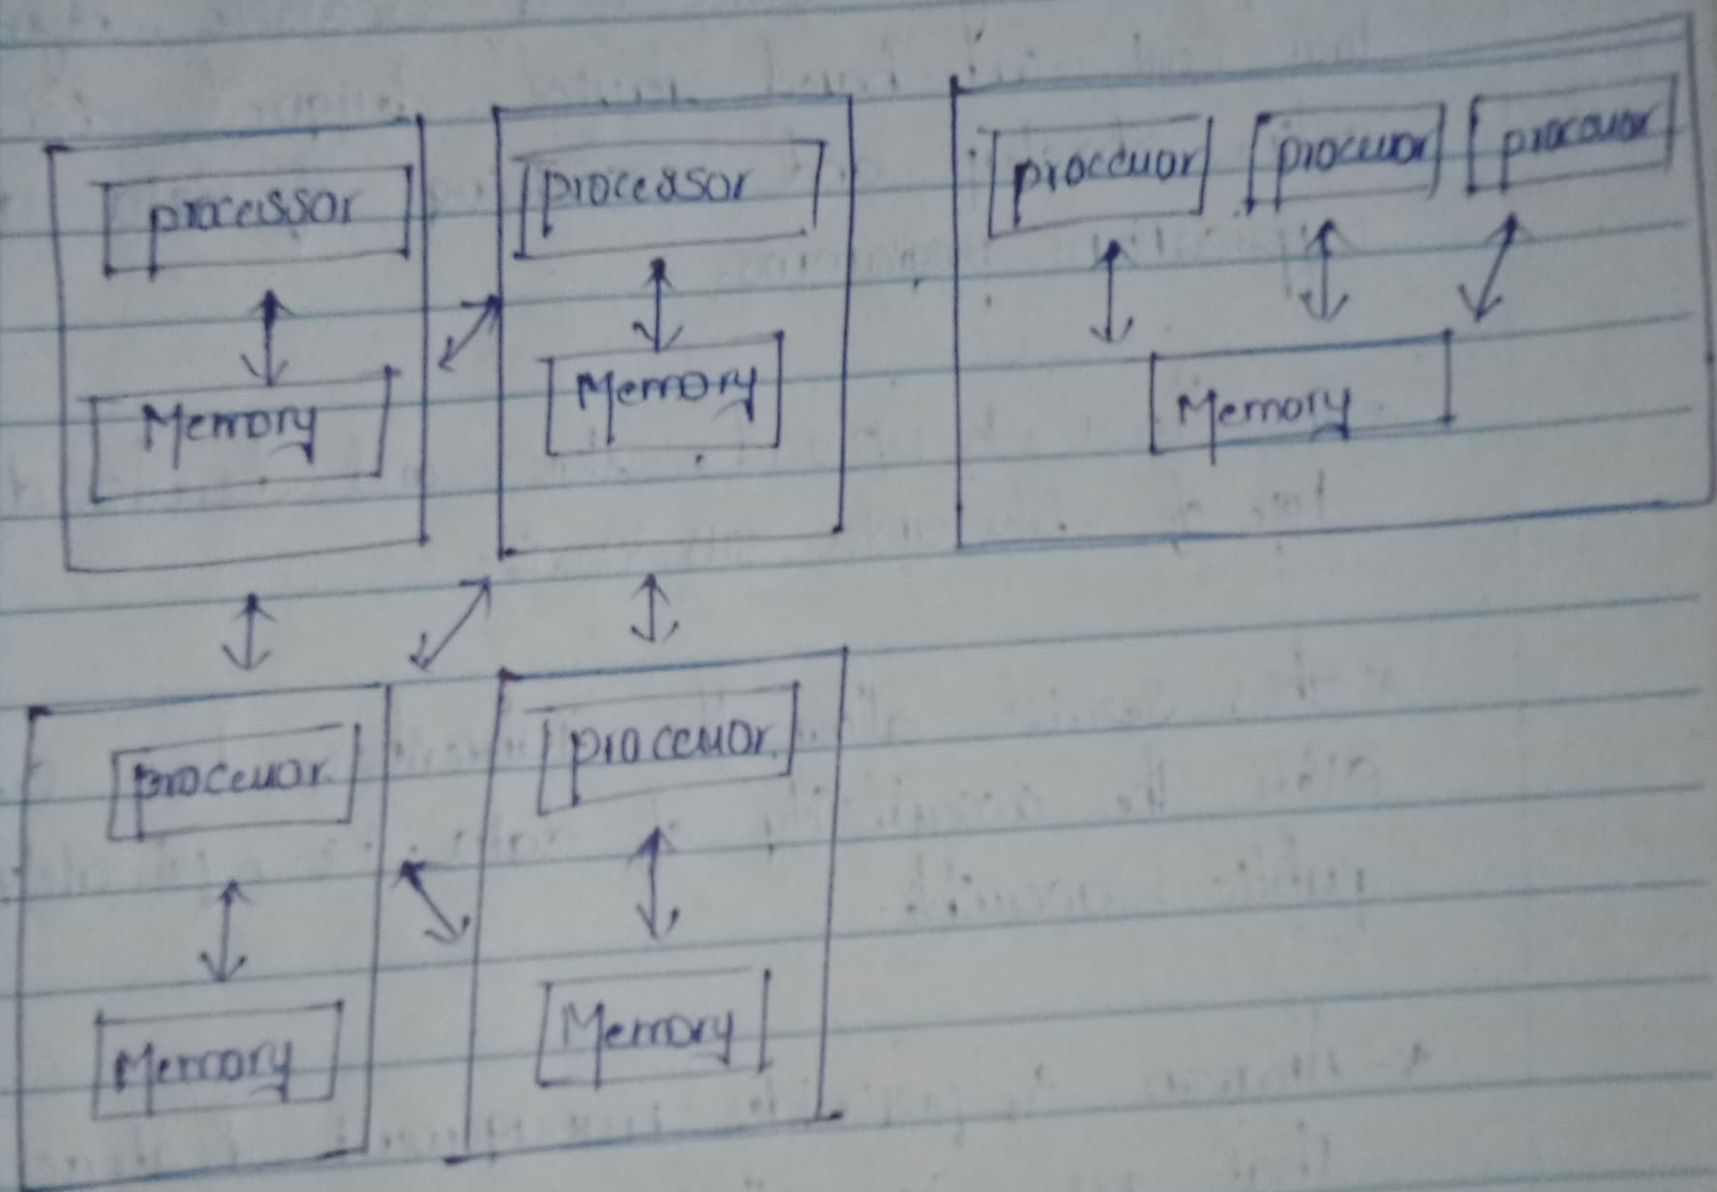 processor
Memory
processor
Memory
processor processor processor
Memory
processor
Memory
processor
Memory